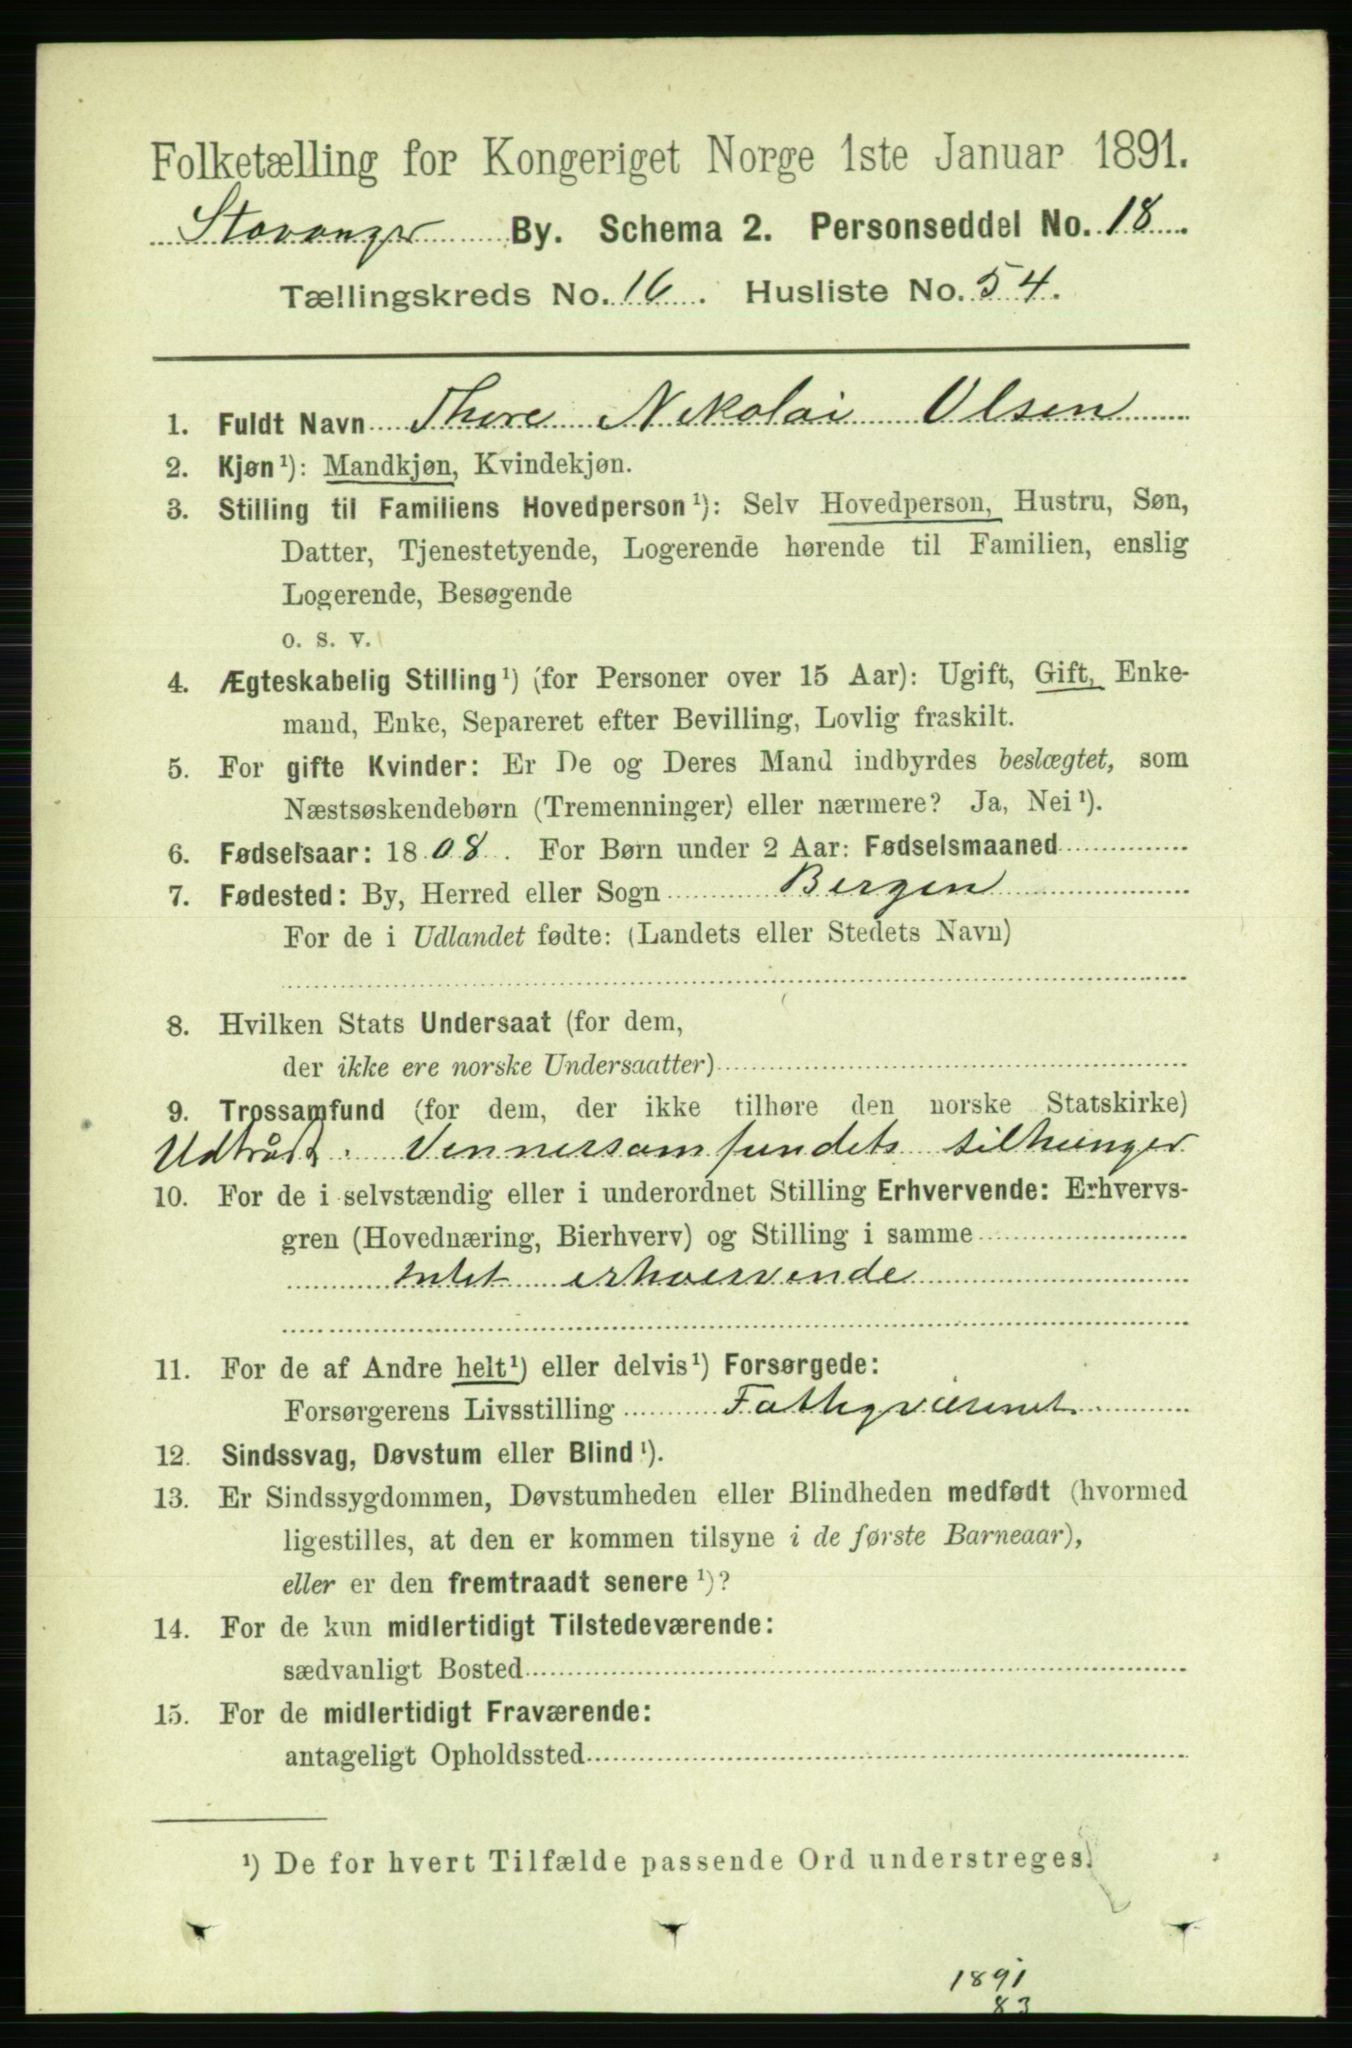 Folketælling for Kongeriget Norge 1ste Januar 1891.
Stavanger By. Schema 2. Personseddel No. 18
Tællingskreds No. 16. Husliste No. 54.
1. Fuldt Navn Thore Nikolai Olsen
2. Kjøn¹): Mandkjøn, Kvindekjøn.
3. Stilling til Familiens Hovedperson¹): Selv Hovedperson, Hustru, Søn,
Datter, Tjenestetyende, Logerende hørende til Familien, enslig
Logerende, Besøgende
o. s. v.
4. Ægteskabelig Stilling¹) (for Personer over 15 Aar): Ugift, Gift, Enke-
mand, Enke, Separeret efter Bevilling, Lovlig fraskilt.
5. For gifte Kvinder: Er De og Deres Mand indbyrdes beslægtet, som
Næstsøskendebørn (Tremenninger) eller nærmere? Ja, Nei¹).
6. Fødselsaar: 1808. For Børn under 2 Aar: Fødselsmaaned
7. Fødested: By, Herred eller Sogn Bergen
For de i Udlandet fødte: (Landets eller Stedets Navn)
8. Hvilken Stats Undersaat (for dem,
der ikke ere norske Undersaatter)
9. Trossamfund (for dem, der ikke tilhøre den norske Statskirke)
Udtrådt. Vennersamfundets tilhænger
10. For de i selvstændig eller i underordnet Stilling Erhvervende: Erhvervs-
gren (Hovednæring, Bierhverv) og Stilling i samme
Intet erhvervende
11. For de af Andre helt¹) eller delvis¹) Forsørgede:
Forsørgerens Livsstilling Fattigvæsenet
12. Sindssvag, Døvstum eller Blind¹).
13. Er Sindssygdommen, Døvstumheden eller Blindheden medfødt (hvormed
ligestilles, at den er kommen tilsyne i de første Barneaar),
eller er den fremtraadt senere¹)?
14. For de kun midlertidigt Tilstedeværende:
sædvanligt Bosted
15. For de midlertidigt Fraværende:
antageligt Opholdssted
¹) De for hvert Tilfælde passende Ord understreges.
1891
83